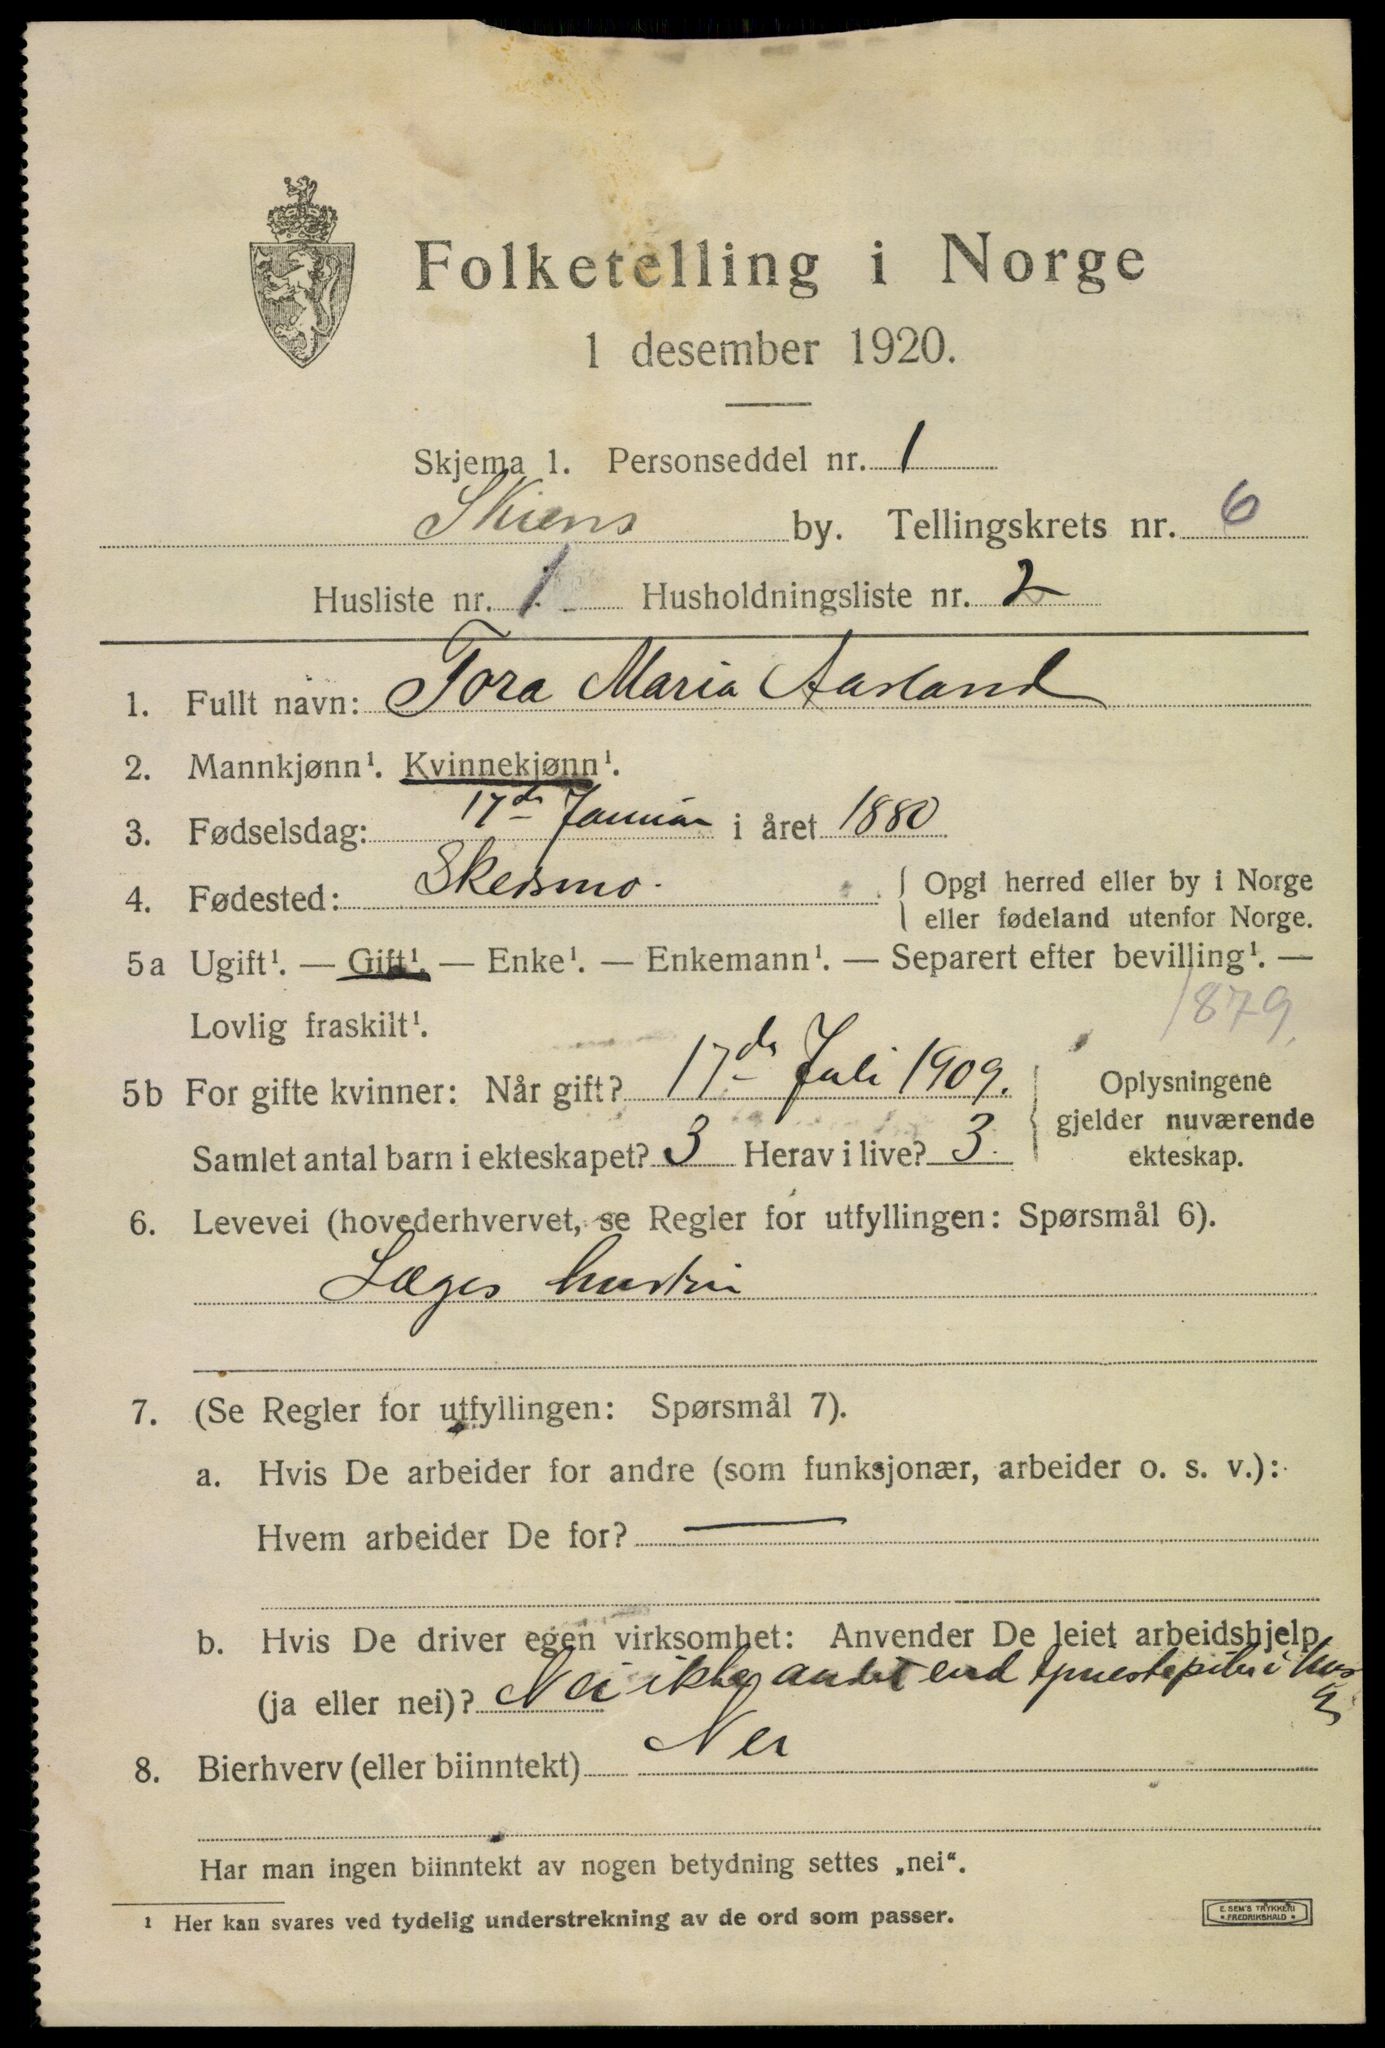 Folketelling i Norge
1 desember 1920.
Skjema 1. Personseddel nr. 1
Skiens by. Tellingskrets nr. 6
Husliste nr. 1 Husholdningsliste nr. 2
1. Fullt navn: Tora Maria Aarland
2. Mannkjønn¹. Kvinnekjønn¹.
3. Fødselsdag: 17de Januar i året 1880
4. Fødested: Skedsmo. { Opgi herred eller by i Norge
eller fødeland utenfor Norge.
5a Ugift¹. — Gift¹. — Enke¹. — Enkemann¹. — Separert efter bevilling¹. —
Lovlig fraskilt¹. 1879.
5b For gifte kvinner: Når gift? 17de Juli 1909. Oplysningene
gjelder nuværende
Samlet antal barn i ekteskapet? 3 Herav i live? 3. ekteskap.
6. Levevei (hovederhvervet, se Regler for utfyllingen: Spørsmål 6).
Læges hustru
7. (Se Regler for utfyllingen: Spørsmål 7).
a. Hvis De arbeider for andre (som funksjonær, arbeider o. s. v.):
Hvem arbeider De for? —
b. Hvis De driver egen virksomhet: Anvender De leiet arbeidshjelp
(ja eller nei)? Nei ikke andet end tjenestepiker i hus
8. Bierhverv (eller biinntekt) Nei
Har man ingen biinntekt av nogen betydning settes „nei“.
¹ Her kan svares ved tydelig understrekning av de ord som passer.
E. SEM'S TRYKKERI
• FREDRIKSHALD •